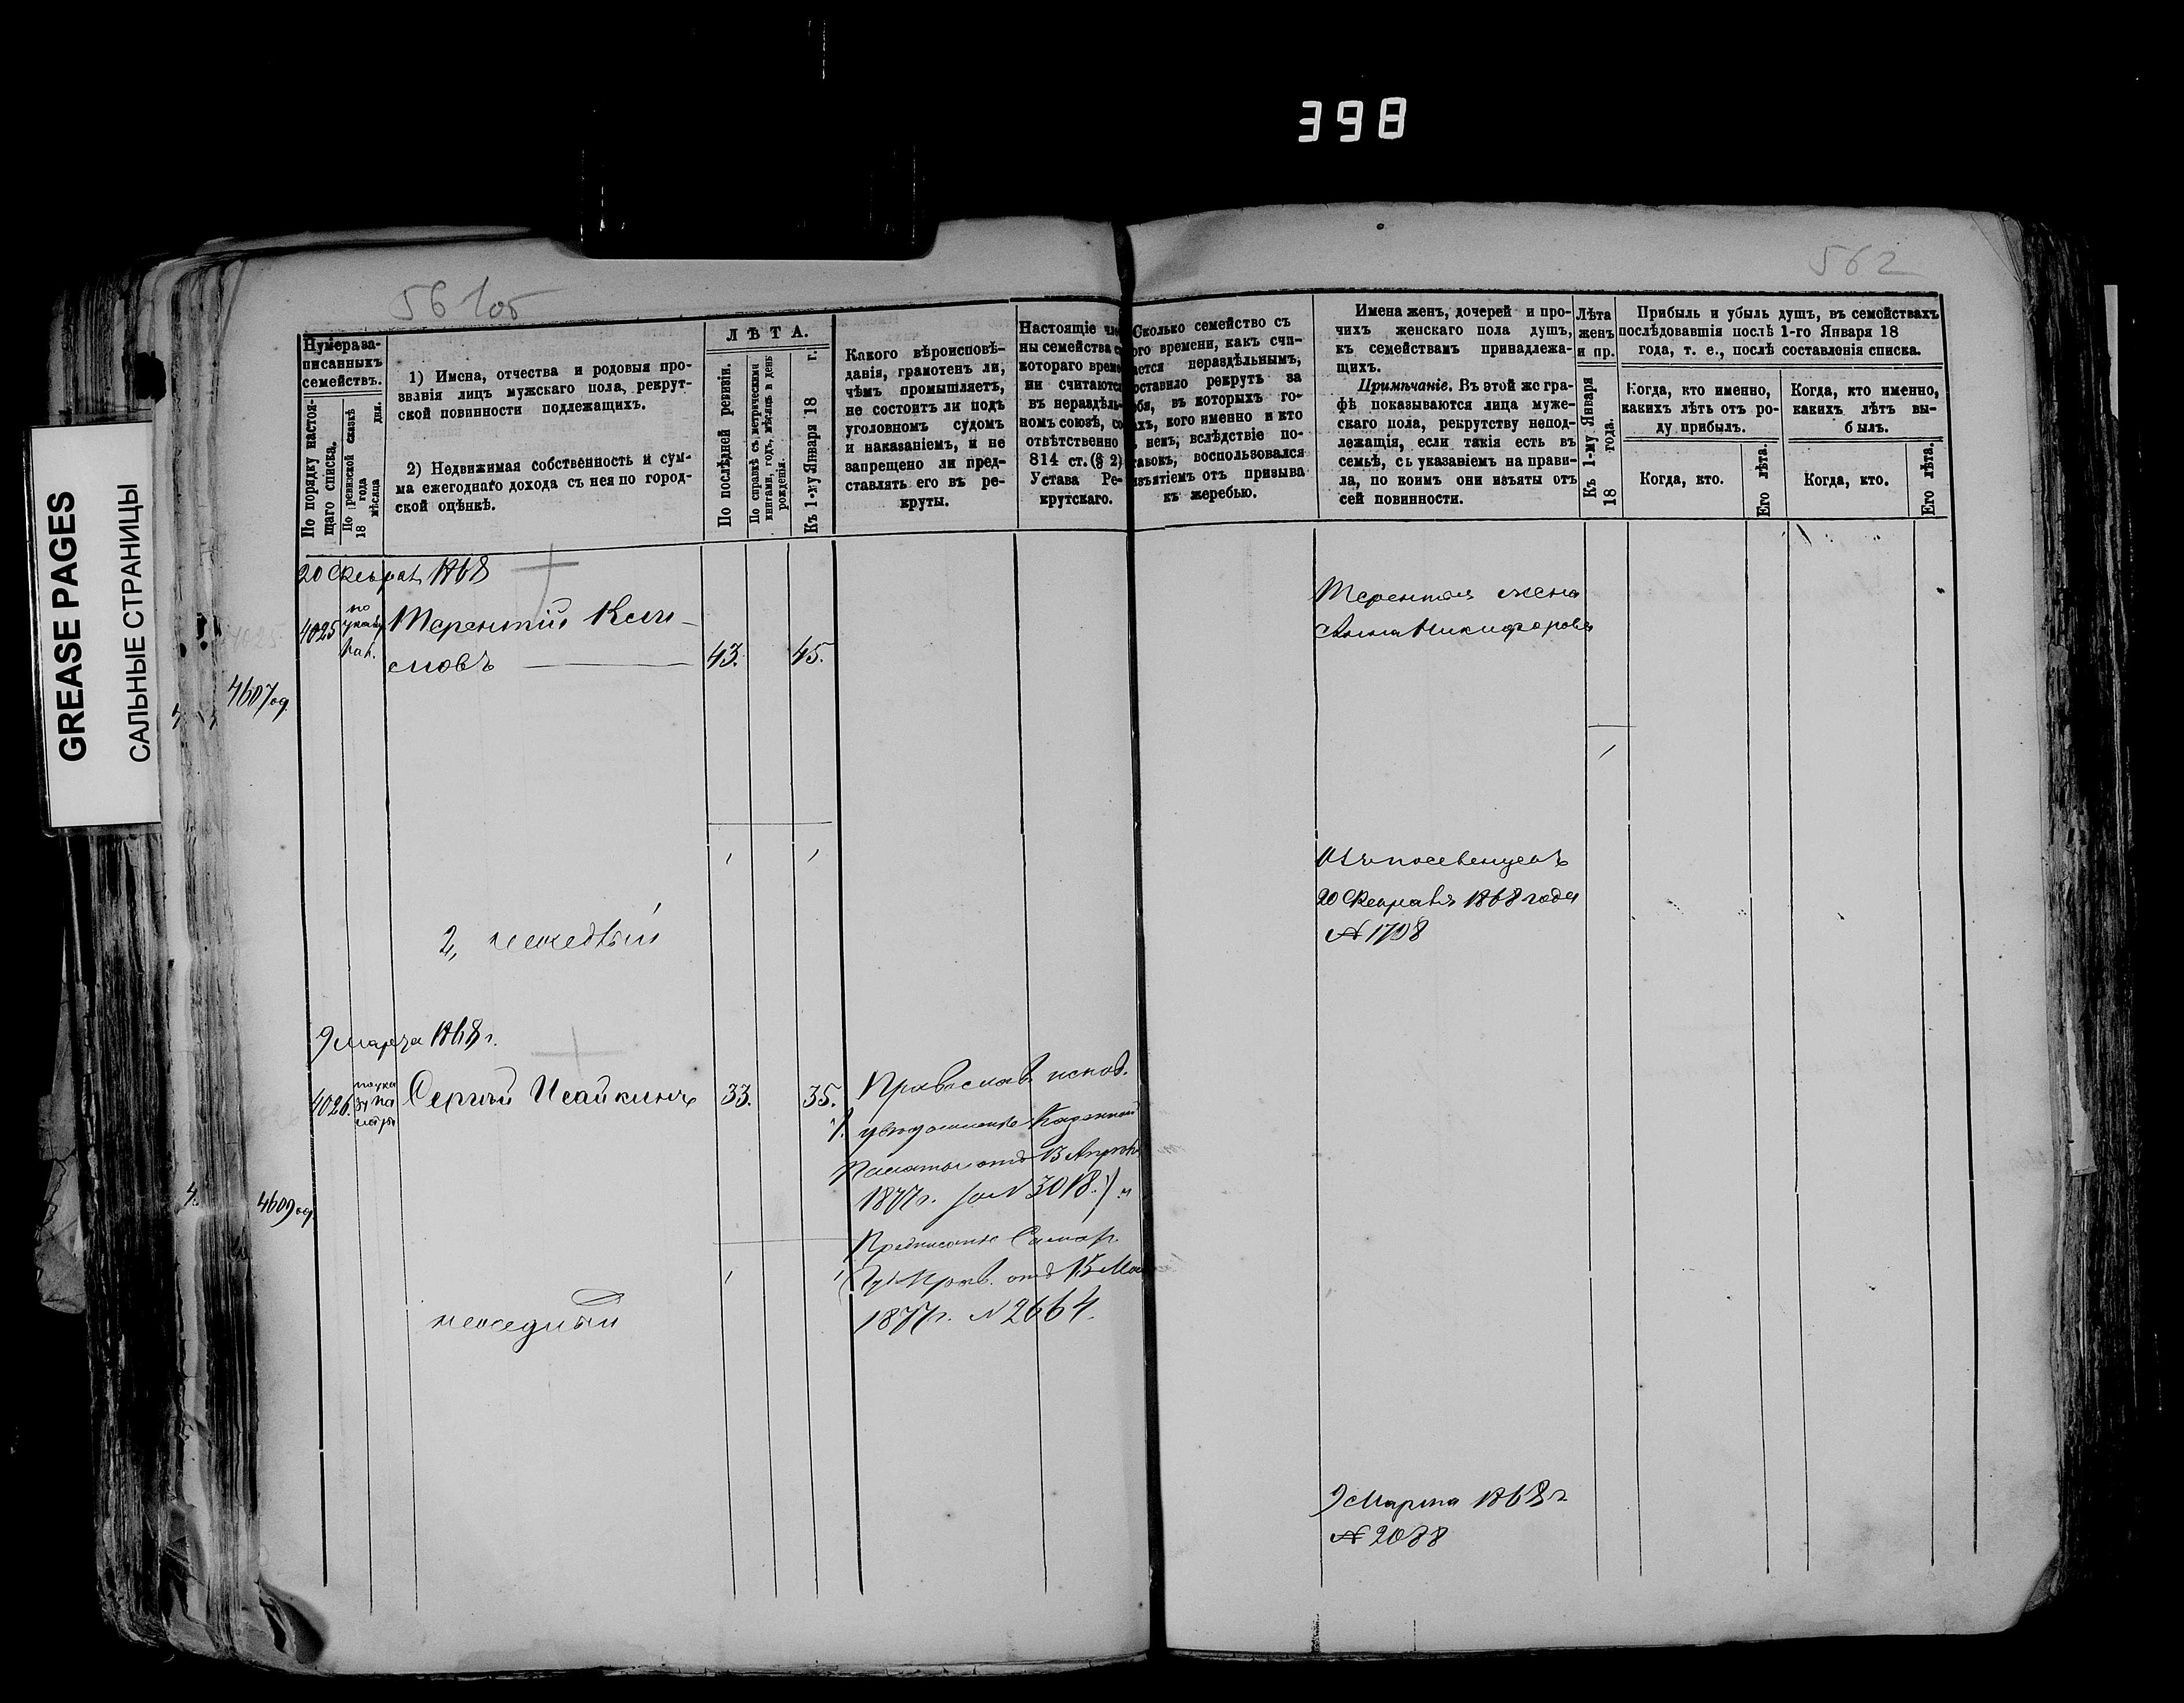 398
GREASE PAGES
САЛЬНЫЕ СТРАНИЦЫ
561об
562
Нумера за-
писанныхъ
семействъ.
По порядку настоя-
щаго списка.
По ревизской сказкѣ
18 года
мѣсяца дня.
1) Имена, отчества и родовыя про-
званія лицъ мужскаго пола, рекрут-
ской повинности подлежащихъ.
2) Недвижимая собственность и сум-
ма ежегоднаго дохода съ нея по город-
ской оцѣнкѣ.
ЛѢТА.
По послѣдней ревизіи.
По справкѣ съ метрическими
книгами, годъ, мѣсяцъ и день
рожденія.
Къ 1-му Января 18 г.
Какого вѣроисповѣ-
данія, грамотенъ ли,
чѣмъ промышляетъ,
не состоитъ ли подъ
уголовномъ судомъ
и наказаніемъ, и не
запрещено ли пред-
ставлять его въ ре-
круты.
Настоящіе чле
ны семейства с
котораго време
ни считаются
въ нераздѣль-
номъ союзѣ, со
отвѣтственно
814 ст. (§ 2)
Устава Ре-
крутскаго.
Сколько семейство съ
ого времени, какъ счи-
ается нераздѣльнымъ,
оставило рекрутъ за
ебя, въ которыхъ го-
ахъ, кого именно и кто
немъ, вслѣдствіе по-
тавокъ, воспользовался
изъятіемъ отъ призыва
къ жеребью.
Имена женъ, дочерей и про-
чихъ женскаго пола душъ,
къ семействамъ принадлежа-
щихъ.
Примѣчаніе. Въ этой же гра-
фѣ показываются лица муже-
скаго пола, рекрутству непод-
лежащія, если такія есть въ
семьѣ, съ указаніемъ на прави-
ла, по коимъ они изъяты отъ
сей повинности.
Лѣта
женъ
и пр.
Къ 1-му Января
18 года.
Прибыль и убыль душъ, въ семействахъ
послѣдовавшія послѣ 1-го Января 18
года, т. е., послѣ составленія списка.
Когда, кто именно,
какихъ лѣтъ отъ ро-
ду прибылъ.
Когда, кто именно,
какихъ лѣтъ вы-
былъ.
Когда, кто.
Его лѣта.
Когда, кто.
Его лѣта.
20 Феврал 1868
4025 по указу Пал. Терентій Кли-
мовъ 43. 45.
4607 од.
1 1
2, неосѣдлый
Терентія жена
Анна Никифорова
1
20 Февраля 1868 года
№ 1708
9 марта 1868 г.
4026. по указу палаты Сергѣй Исайкинъ 33. 35.
4609 од.
1 1
неосѣдлый
Православ. испов.
увѣдомленіе Казенной
Палаты отъ 13 Апрѣля
1877 г. за № 3018.) и
Предписаніе Самар.
Губ. Прав. отъ 15 Мая
1877 г. № 2664.
9 Марта 1868 г
№ 2088